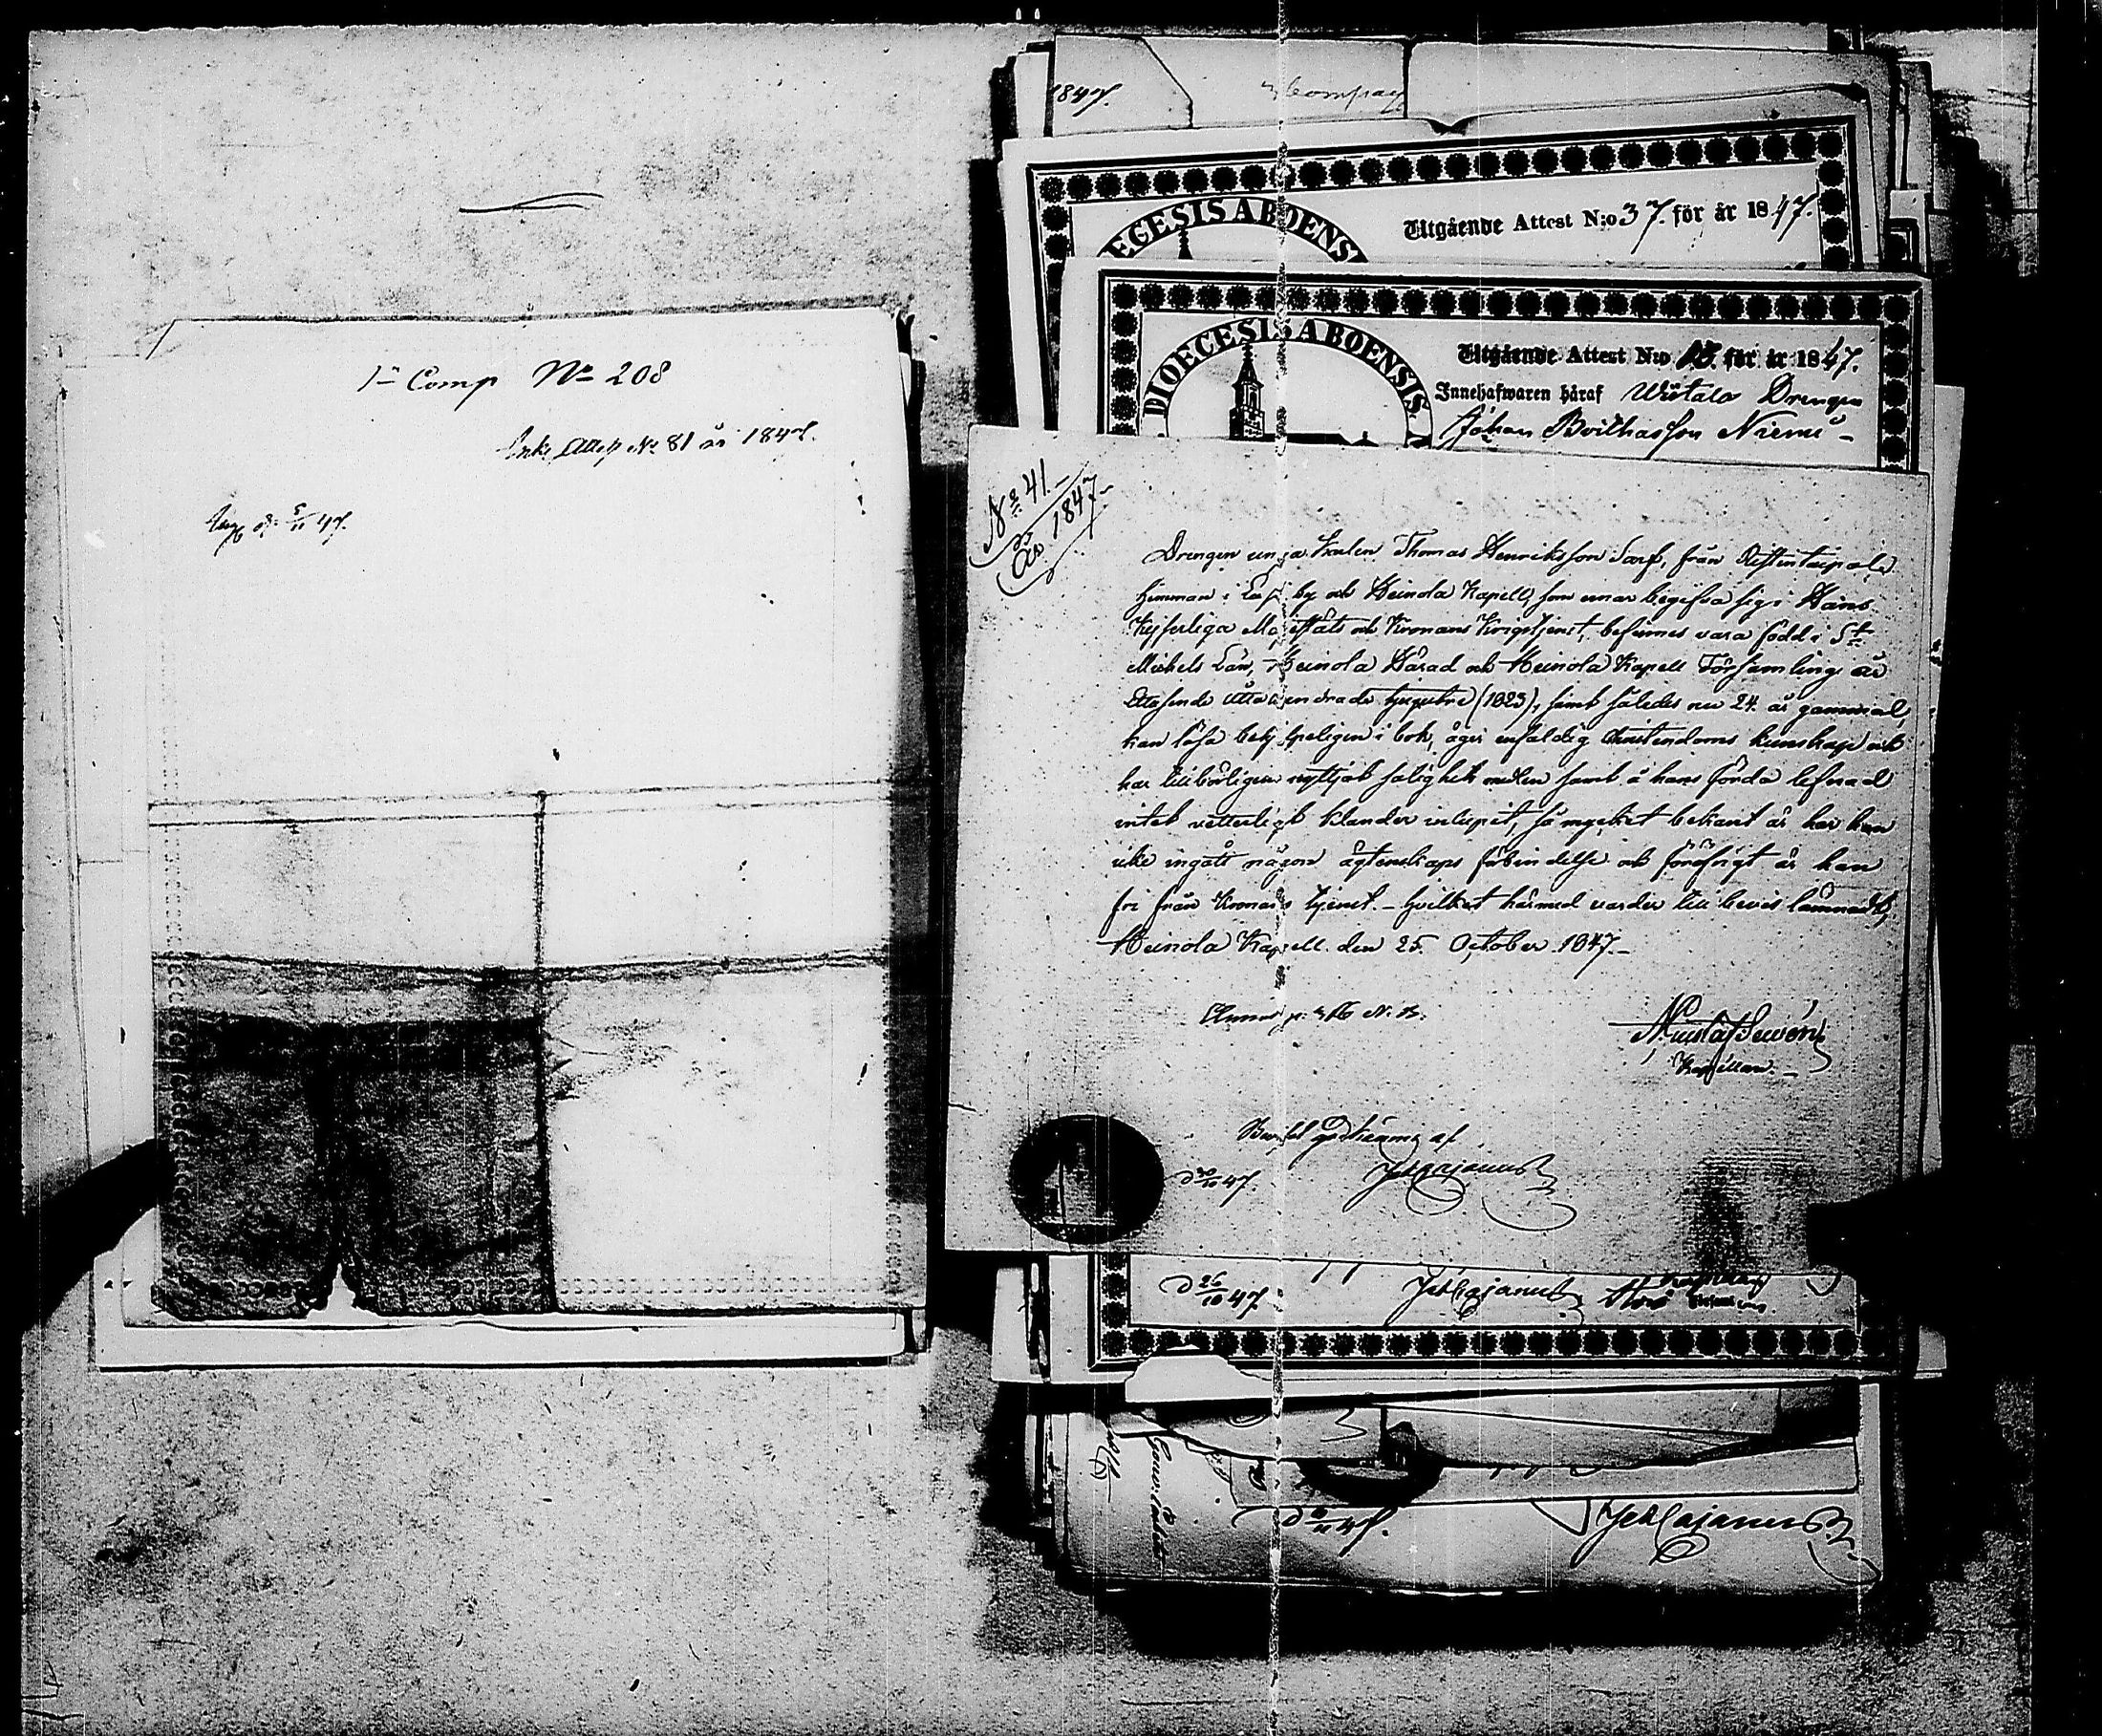 1:a Comp No 208
Attest No 81 år 1847.
1847.
Compag
ECESIS ABOENS
Utgående Attest N:o 37. för år 1847.
DIOECESIS ABOENSIS
Utgående Attest N:o 13. för år 1847.
Innehafwaren häraf Drengen
Johan Niemi-
No 41.-
År 1847-
Drengen unga Karlen Thomas Henriksson Sarf, från
hemman i by och Heinola Kapell, som ernar begifva sig i Hans
Kejserliga Majestäts och Kronans Krigstjenst, befinnes vara född i S:t
Michels Län, Heinola Härad och Heinola Kapell Församling år
Ettusende Åttahundrade tjugutre (1823), samt således nu 24 år gammal,
kan läsa begripeligen i bok, äger enfaldig Christendoms kunskap och
har tillbörligen nyttjat salighets medlen samt å hans förda lefnad
intet vetterligt klander inlupit, så mycket bekant är har han
icke ingått någon ägtenskaps förbindelse och föröfrigt är han
fri från Kronans tjenst. - Hvilket härmed varder till bevis lämnadt,
Heinola Kapell den 25. October 1847.-
Kapellan. -
af
d 30/10 47.
JebCajanus
d 26/10 47.
JebCajanus
47.
JebCajanus